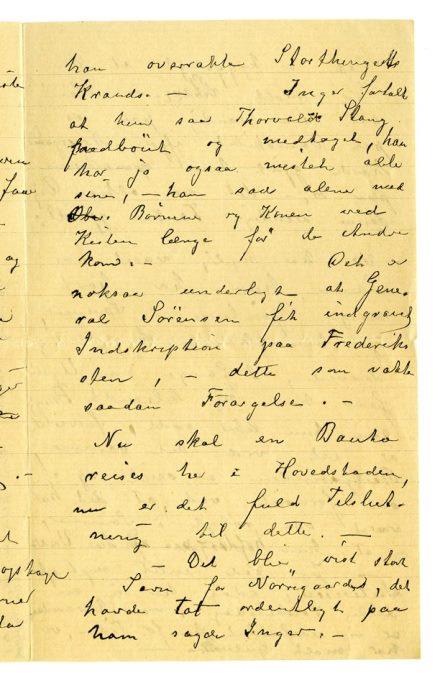 han overrakte Storthingets
Krands. — Inger fortalt
at hun saa Thorvald Stang
nedböiet og medtaget, han
har jo ogsaa mistet alle
sine, — han sad alene med
Börnene og Konen ved
Kisten længe før de Andre
kom. — Det er
noksaa underligt at Gene-
ral Sörensen fik indgravet
Indskription paa Frederiks
sten, — dette som vakte
saadan Forargelse. —
Nu skal en Bauta
reises her i Hovedstaden,
nu er det fuld Tilslut-
ning til dette. —
— Det blir vist stort
Savn for Nörregaards, det
havde tat ordentlygt paa
ham sagde Inger. —